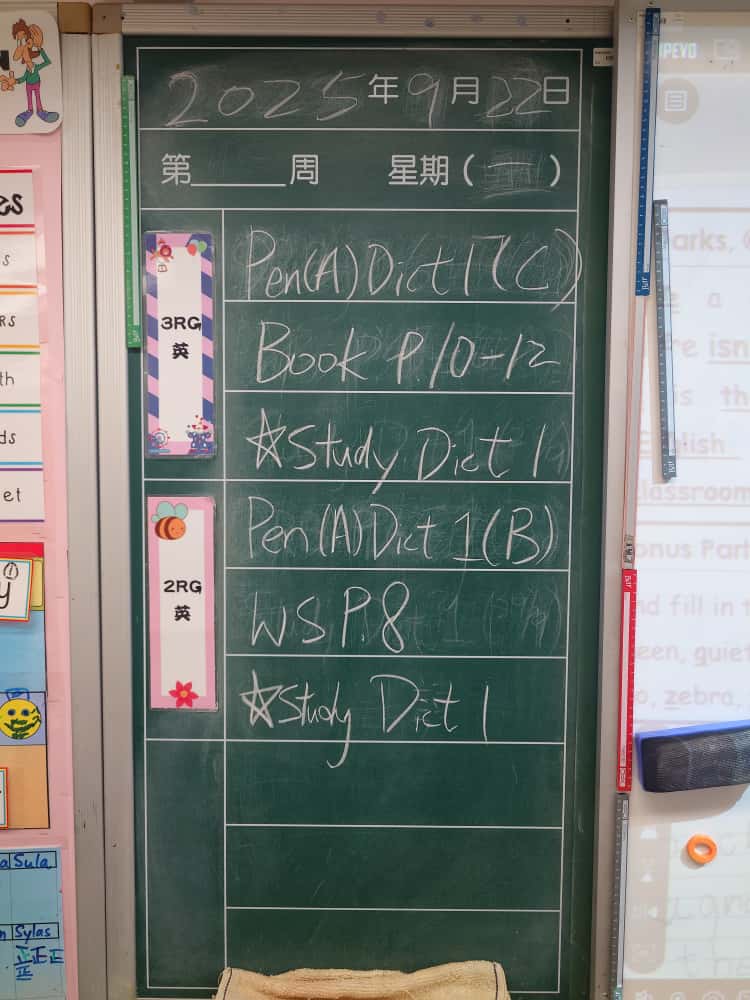 2025年9月22日
第____周 星期(一)
3RG
英
Pen(A) Dict 1 (C)
Book P.10-12
☆Study Dict 1
2RG
英
Pen(A) Dict 1 (B)
WS P.8
☆Study Dict 1
s
RS
th
ds
et
y
Sula
Sylas
正正
正
IPEVO
arks,
a
re isn
is th
English
classroom
onus Part
nd fill in t
een, quiet
o, zebra,